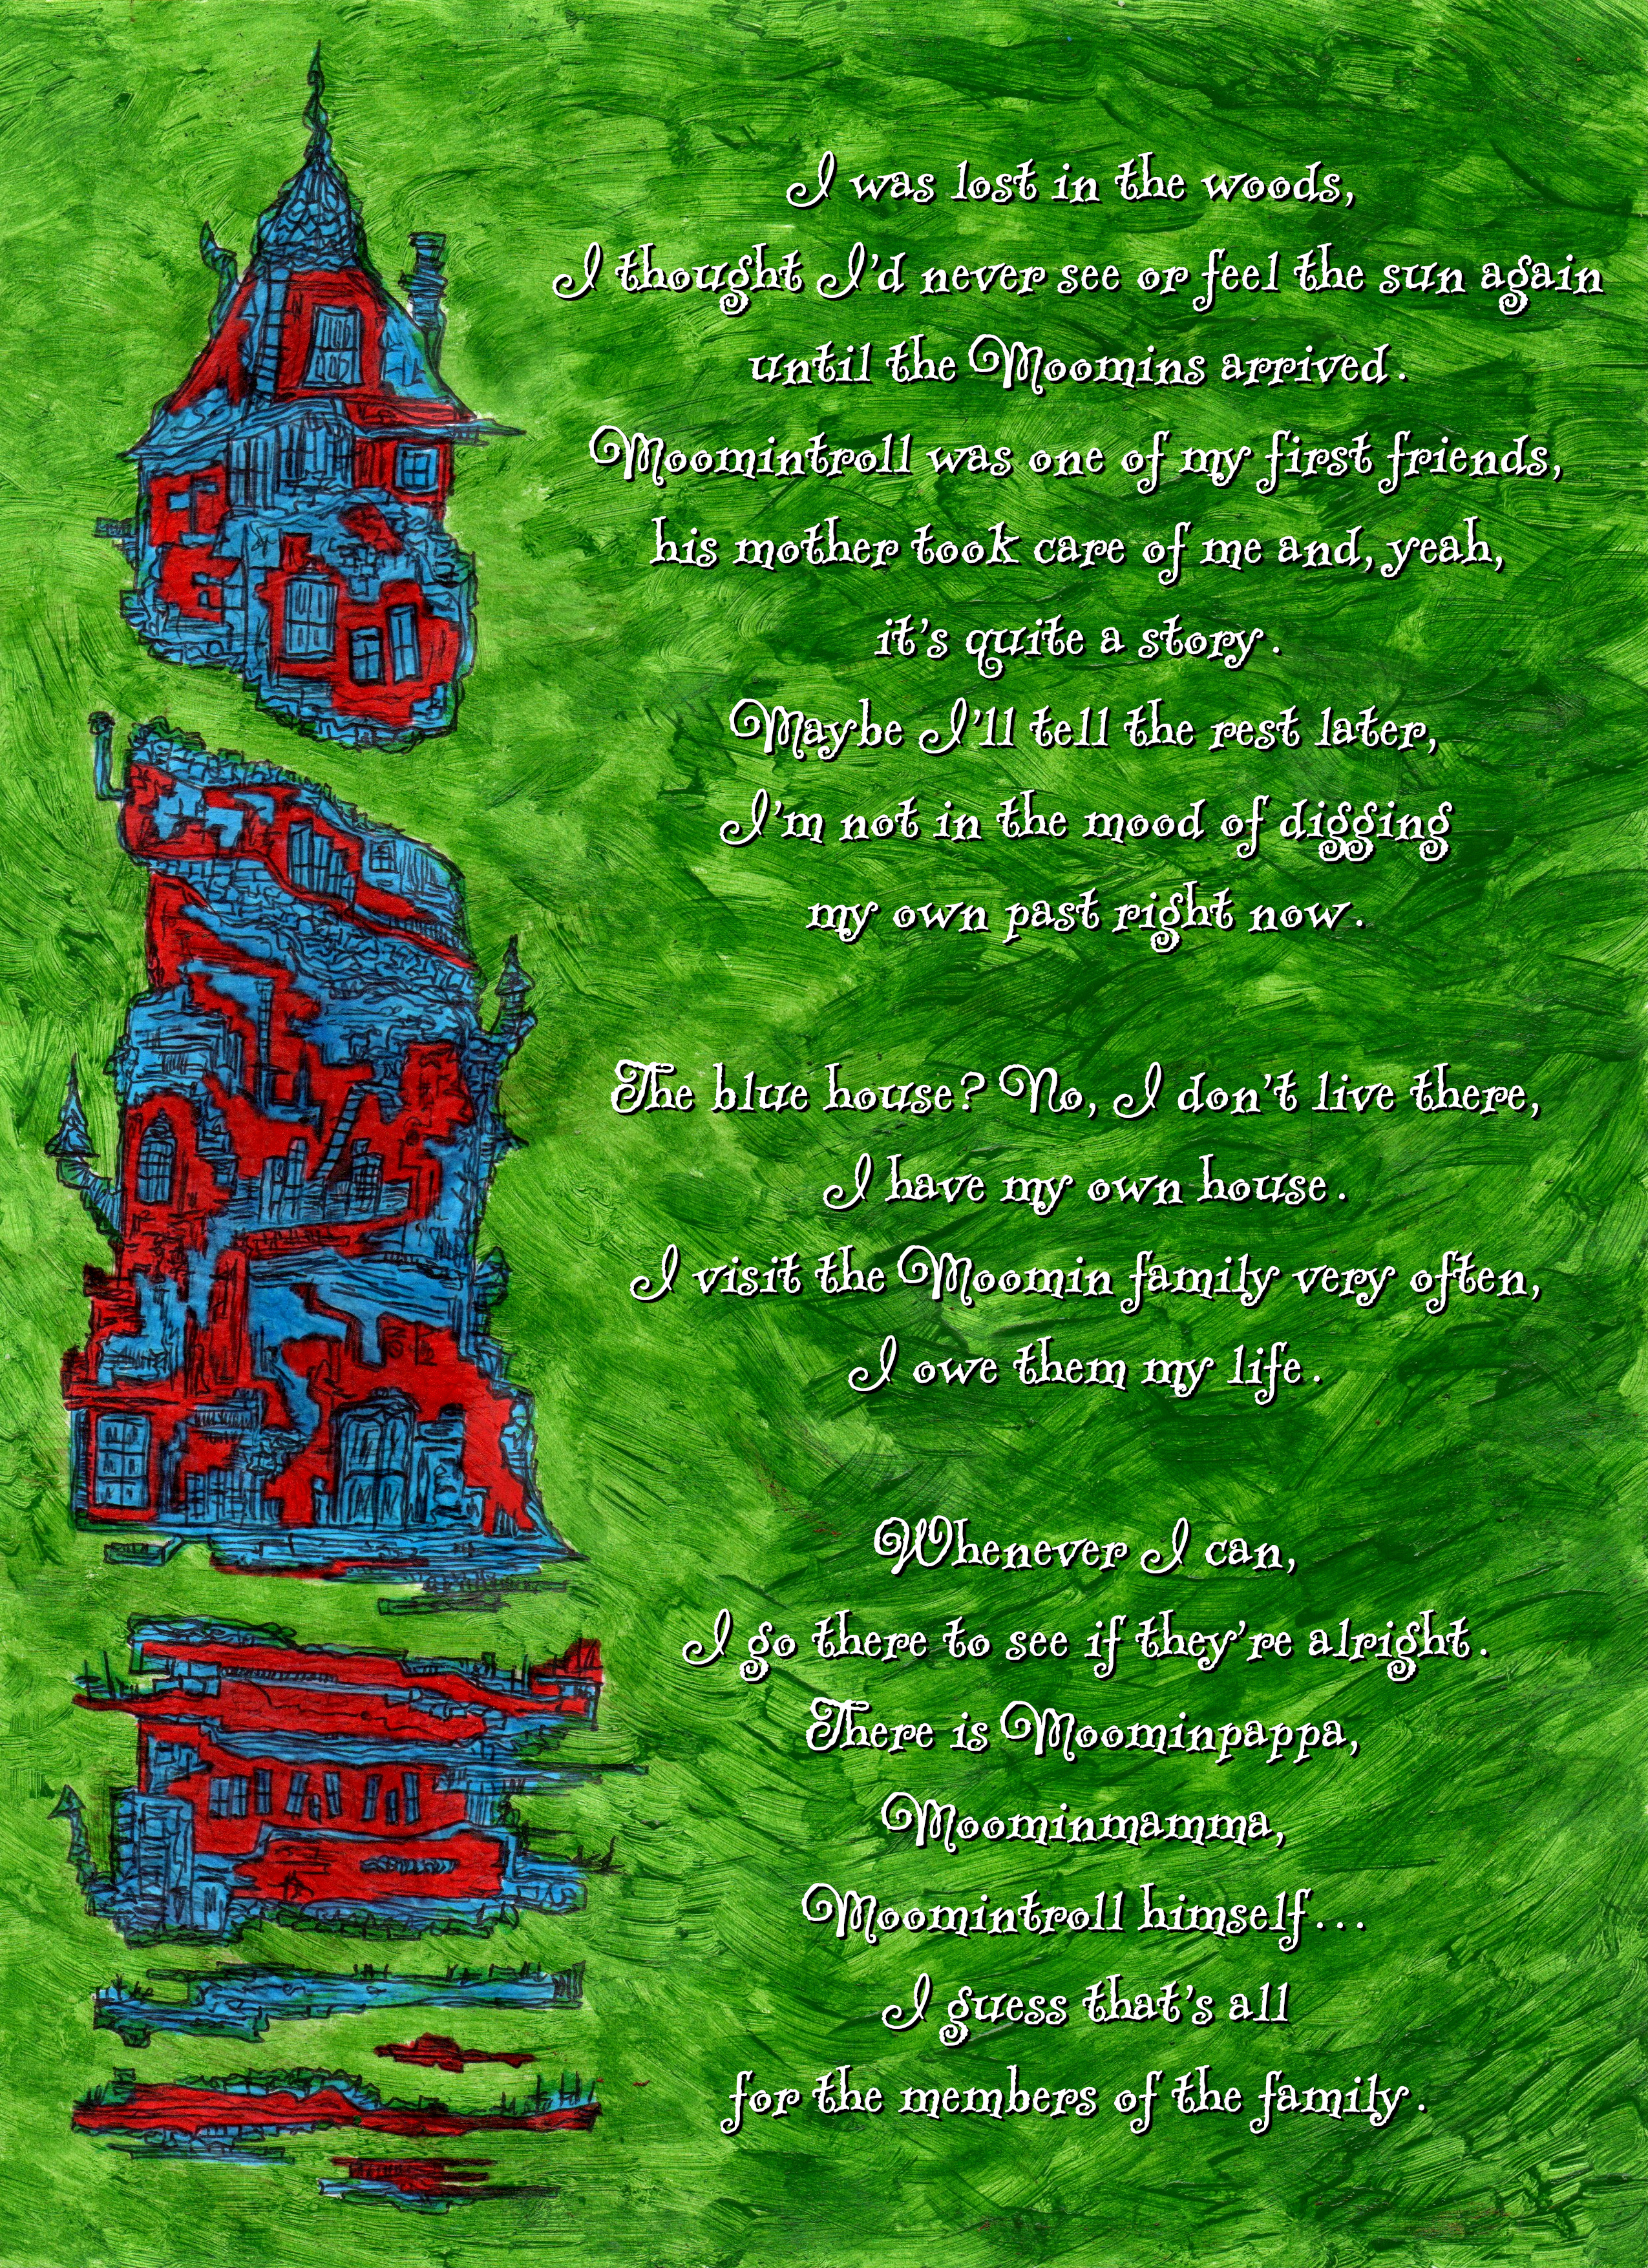 I was lost in the woods,
I thought I'd never see or feel the sun again
until the Moomins arrived.
Moomintroll was one of my first friends,
his mother took care of me and, yeah,
it's quite a story.
Maybe I'll tell the rest later,
I'm not in the mood of digging
my own past right now.
The blue house? No, I don't live there,
I have my own house.
I visit the Moomin family very often,
I owe them my life.
Whenever I can,
I go there to see if they're alright.
There is Moominpappa,
Moominmamma,
Moomintroll himself...
I guess that's all
for the members of the family.